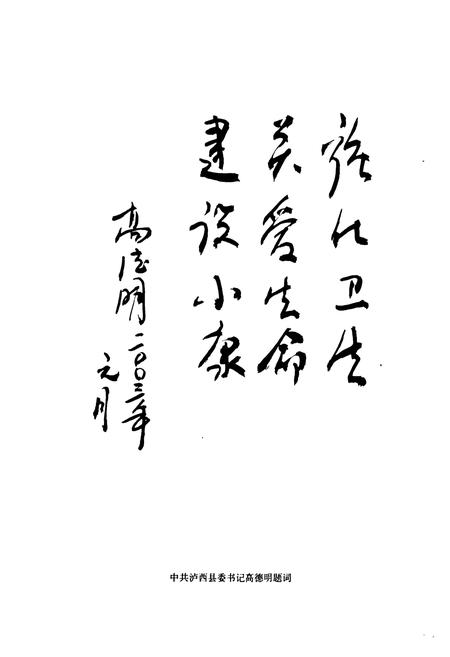 强化卫生
关爱生命
建设小康
高德明二〇〇三年
元月
中共泸西县委书记高德明题词